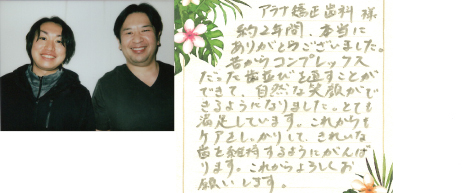 アラナ矯正歯科 様
約2年間、本当に
ありがとうございました。
昔からコンプレックス
だった歯並びを直すことが
できて、自然な笑顔がで
きるようになりました。とても
満足しています。これからも
ケアをしっかりして、きれいな
歯を維持するようにがんば
ります。これからよろしくお
願いします。